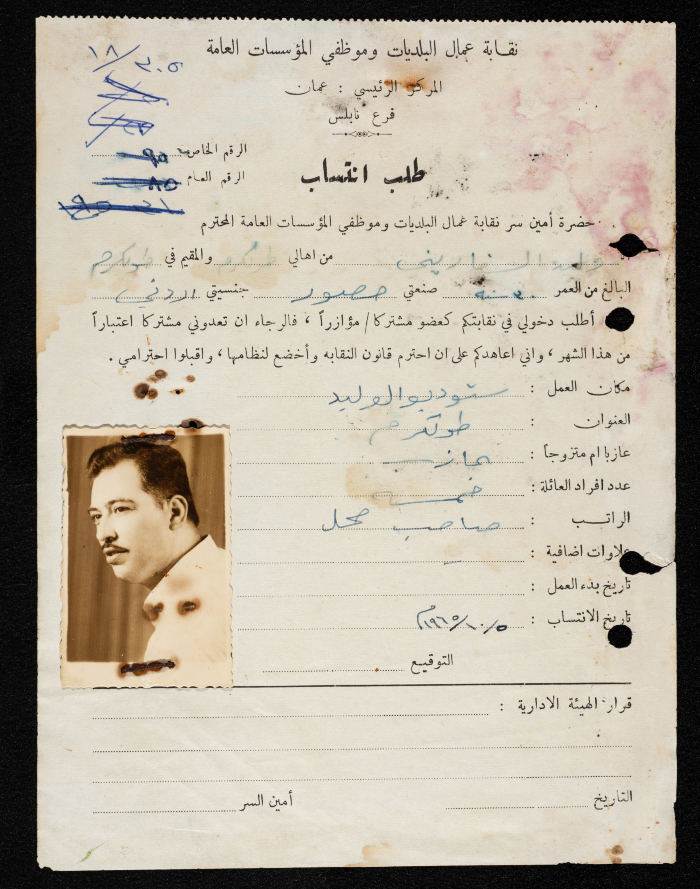 نقابة عمال البلديات وموظفي المؤسسات العامة
١٨/٢٠٥
المركز الرئيسي : عمان
فرع نابلس
الرقم الخاص ٩٠
الرقم العام ٨٥
طلب انتساب
حضرة أمين سر نقابة عمال البلديات وموظفي المؤسسات العامة المحترم
وليد من اهالي طولكرم والمقيم في طولكرم
البالغ من العمر سنة صنعتي مصور جنسيتي اردني
أطلب دخولي في نقابتكم كعضو مشتركا / مؤازراً ، فالرجاء ان تعدوني مشتركا اعتباراً
من هذا الشهر ، واني اعاهدكم على ان احترم قانون النقابه وأخضع لنظامها ، واقبلوا احترامي .
مكان العمل : ستوديو الوليد
العنوان : طولكرم
عازبا ام متزوجاً : عازب
عدد افراد العائلة : خمسه
الراتب : صاحب محل
علاوات اضافية : –
تاريخ بدء العمل :
تاريخ الانتساب : ١٩٦٥/١٠/٥م
التوقيع
قرار الهيئة الادارية :
التاريخ أمين السر